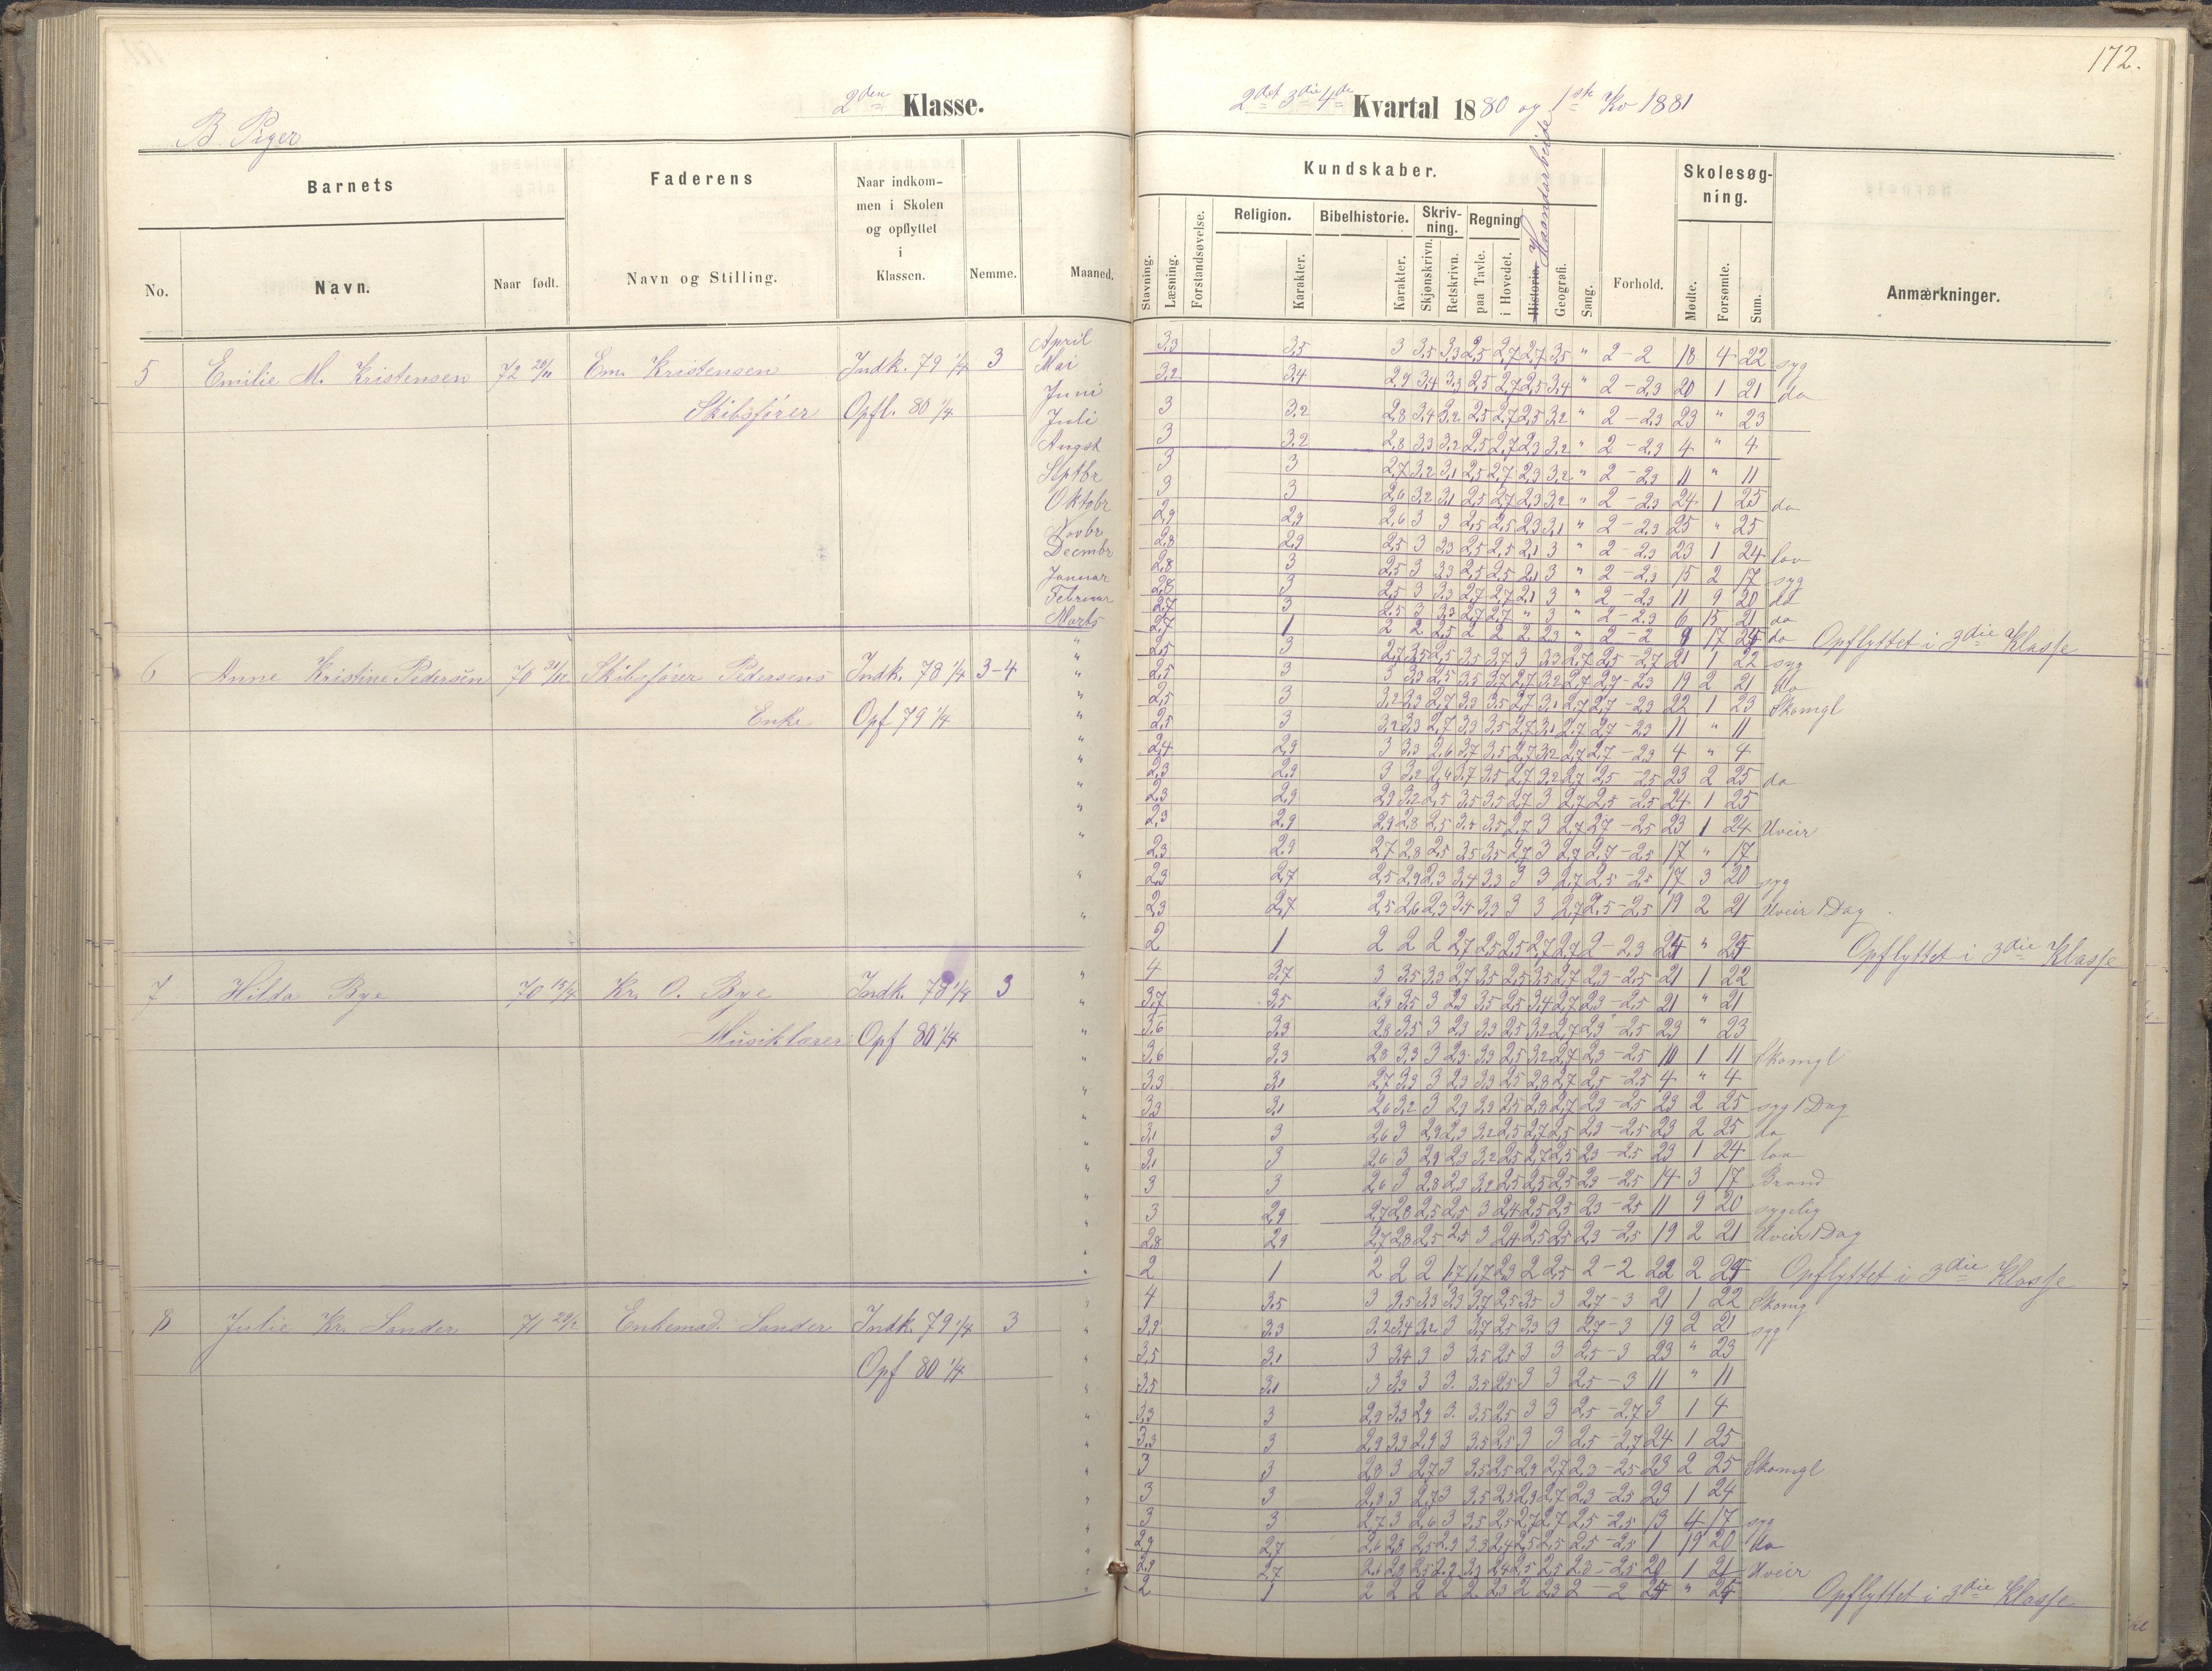 172.
2den Klasse.
2det 3die 4de Kvartal 1880 og 1ste Kv 1881
B Piger
Barnets
Faderens
Naar indkom-
men i Skolen
og opflyttet
i
Klassen.
No.
Navn.
Naar født.
Navn og Stilling.
Nemme.
Maaned.
Kundskaber.
Skolesøg-
ning.
Stavning.
Læsning.
Forstandsøvelse.
Religion.
Karakter.
Bibelhistorie.
Karakter.
Skriv-
ning.
Skjønskrivn.
Retskrivn.
Regning
paa Tavle.
i Hovedet.
Historie. Haandarbeide
Geografi.
Sang.
Forhold.
Mødte.
Forsømte.
Sum.
Anmærkninger.
5 Emilie M. Kristensen 72 20/11 Em. Kristensen Indk. 79 1/4 3
Skibsfører Opfl. 80 1/4
April 3,3 3,5 3 3,5 3,3 2,5 2,7 2,7 3,5 " 2-2 18 4 22 syg
Mai 3,2 3,4 2,9 3,4 3,3 2,5 2,7 2,5 3,4 " 2-2,3 20 1 21 do
Juni 3 3,2 2,8 3,4 3,2 2,5 2,7 2,5 3,2 " 2-2,3 23 " 23
Juli 3 3,2 2,8 3,3 3,2 2,5 2,7 2,3 3,2 " 2-2,3 4 " 4
Augst 3 3 2,7 3,2 3,1 2,5 2,7 2,3 3,2 " 2-2,3 11 " 11
Septbr 3 3 2,6 3,2 3,1 2,5 2,7 2,3 3,2 " 2-2,3 24 1 25 do
Oktobr 2,9 2,9 2,6 3 3 2,5 2,5 2,3 3,1 " 2-2,3 25 " 25
Novbr 2,8 2,9 2,5 3 3,3 2,5 2,5 2,1 3 " 2-2,3 23 1 24 lov
Decmbr 2,8 3 2,5 3 3,3 2,5 2,5 2,1 3 " 2-2,3 15 2 17 syg
Januar 2,8 3 2,5 3 3,3 2,7 2,7 2,1 3 " 2-2,3 11 9 20 do
Februar 2,7 3 2,5 3 3,3 2,7 2,7 " 3 " 2-2,3 6 15 21 do
Marts 2,7 1 2 2 2,5 2 2 2 2,3 " 2-2 17 do Opflyttet i 3die Klasse
6 Anne Kristine Pedersen 70 31/12 Skibsfører Pedersens Indk. 78 1/4 3-4
Enke Opf 79 1/4
2,5 3 2,7 3,5 2,5 3,5 3,7 3 3,3 2,7 2,5-2,7 21 1 22 syg
2,5 3 3 3,3 2,5 3,5 3,7 2,7 3,2 2,7 2,7-2,3 19 2 21 do
2,5 3 3,2 3,3 2,7 3,3 3,5 2,7 3,1 2,7 2,7-2,3 22 1 23 Skomgl
2,5 3 3,2 3,3 2,7 3,3 3,5 2,7 3,1 2,7 2,7-2,3 11 " 11
2,4 2,9 3 3,3 2,6 3,7 3,5 2,7 3,2 2,7 2,7-2,3 4 " 4
2,3 2,9 3 3,2 2,4 3,7 3,5 2,7 3,2 2,7 2,5-2,5 23 2 25 do
2,3 2,9 2,9 3,2 2,5 3,5 3,5 2,7 3 2,7 2,5-2,5 24 1 25
2,3 2,9 2,9 2,8 2,5 3,5 3,5 2,7 3 2,7 2,7-2,5 23 1 24 Uveir
2,3 2,9 2,7 2,8 2,5 3,5 3,5 2,7 3 2,7 2,7-2,5 17 " 17
2,3 2,7 2,5 2,9 2,3 3,4 3,3 3 3 2,7 2,5-2,5 17 3 20 syg
2,3 2,7 2,5 2,6 2,3 3,4 3,3 3 3 2,7 2,5-2,5 19 2 21 Uveir 1 Dag
2 1 2 2 2 2,7 2,5 2,5 2,7 2,7 2-2,3 " Opflyttet i 3die Klasse
7 Hilda Bye 70 15/4 Kr. O. Bye Indk. 78 1/4 3
Musiklærer Opf 80 1/4
4 3,7 3 3,5 3,3 2,7 3,5 2,5 3,5 2,7 2,3-2,5 21 1 22
3,7 3,5 2,9 3,5 3 2,3 3,5 2,5 3,4 2,7 2,3-2,5 21 " 21
3,6 3,3 2,8 3,5 3 2,3 3,3 2,5 3,2 2,7 2,3-2,5 23 " 23
3,6 3,3 2,8 3,3 3 2,3 3,3 2,5 3,2 2,7 2,3-2,5 10 1 11 Skomgl
3,3 3,1 2,7 3,3 3 2,3 3,3 2,5 2,8 2,7 2,5-2,5 4 " 4
3,3 3,1 2,6 3,2 3 2,3 3,3 2,5 2,8 2,7 2,3-2,5 23 2 25 syg 1 Dag
3,1 3 2,6 3 2,9 2,3 3,2 2,5 2,7 2,5 2,3-2,5 23 2 25 do
3,1 3 2,6 3 2,9 2,3 3,2 2,5 2,7 2,5 2,3-2,5 23 1 24 lov
3 3 2,6 3 2,8 2,3 3,2 2,5 2,5 2,5 2,3-2,5 14 3 17 Brand
3 2,9 2,7 2,8 2,5 2,5 3 2,4 2,5 2,5 2,3-2,5 11 9 20 sygelig
2,8 2,9 2,7 2,8 2,5 2,5 3 2,4 2,5 2,5 2,3-2,5 19 2 21 Uveir 1 Dag
2 1 2 2 2 1,7 1,7 2,3 2 2,5 2-2 22 2 Opflyttet i 3die Klasse
8 Julie Kr. Sander 71 Enkemad. Sander Indk. 79 1/4 3
Opf 80 1/4
4 3,5 3 3,5 3,3 3,3 3,7 2,5 3,5 3 2,7-3 21 1 22 Skomg
3,9 3,3 3,2 3,4 3,2 3 3,7 2,5 3,3 3 2,7-3 19 2 21 syg
3,5 3,1 3 3,4 3 3 3,5 2,5 3 3 2,5-3 23 " 23
3,5 3,1 3 3,3 3 3 3,5 2,5 3 3 2,5-3 11 " 11
3,3 3 2,9 3,3 2,9 3 3,5 2,5 3 3 2,5-2,7 3 1 4
3,3 3 2,9 3,3 2,9 3 3,5 2,5 3 3 2,5-2,7 24 1 25
3 3 2,8 3 2,7 3 3,5 2,5 2,9 2,7 2,3-2,5 23 2 25 Skomgl
3 3 2,8 3 2,7 3 3,5 2,5 2,9 2,7 2,3-2,5 23 1 24
3 3 2,7 3 2,6 3 3,5 2,5 2,7 2,7 2,5-2,5 13 4 17 syg
2,9 2,7 2,6 2,8 2,5 2,3 3,3 2,4 2,5 2,5 2,5-2,5 1 19 20 do
2,9 2,7 2,6 2,8 2,5 2,3 3,3 2,4 2,5 2,5 2,3-2,5 20 1 21 Uveir
2 1 2 2 2 2 2 2,3 2 2,3 2-2 " Opflyttet i 3die Klasse